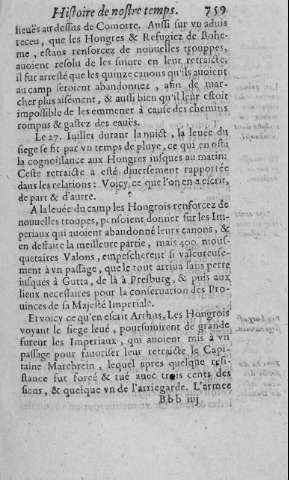 Histoire de nostre temps. 759
lieuës au dessus de Comorre. Aussi sur vn aduis
receu, que les Hongres & Refugiez de Bohe-
me, estans renforcez de nouuelles trouppes,
auoient resolu de les suiure en leur retraicte,
il fut arresté que les quinze canons qu'ils auoient
au camp seroient abandonnez, afin de mar-
cher plus aisément, & aussi bien qu'il leur estoit
impossible de les emmener à cause des chemins
rompus & gastez des eauës.
Le 27. Iuillet durant la nuict, la leuée du
siege se fit par vn temps de pluye, ce qui en osta
la cognoissance aux Hongres iusques au matin:
Ceste retraicte a esté diuersement rapportée
dans les relations: Voicy, ce que l'on en a escrit,
de part & d'autre.
A la leuée du camp les Hongrois renforcez de
nouuelles troupes, pensoient donner sur les Im-
periaux qui auoient abandonné leurs canons, &
en deffaire la meilleure partie, mais 400. mous-
quetaires Valons, empescherent si valeureuse-
ment à vn passage, que le tout arriua sans perte
iusques à Gutta, de là à Presburg, & puis aux
lieux necessaires pour la conseruation des Pro-
uinces de sa Majesté Imperiale.
Et voicy ce qu'en escrit Arthus, Les Hongrois
voyant le siege leué, poursuiuirent de grande
fureur les Imperiaux, qui auoient mis à vn
passage pour fauoriser leur retraicte le Capi-
taine Marchrein, lequel apres quelque resi-
stance fut forcé & tué auec trois cents des
siens, & quelque vn de l'arriegarde. L'armee
B b b iiij